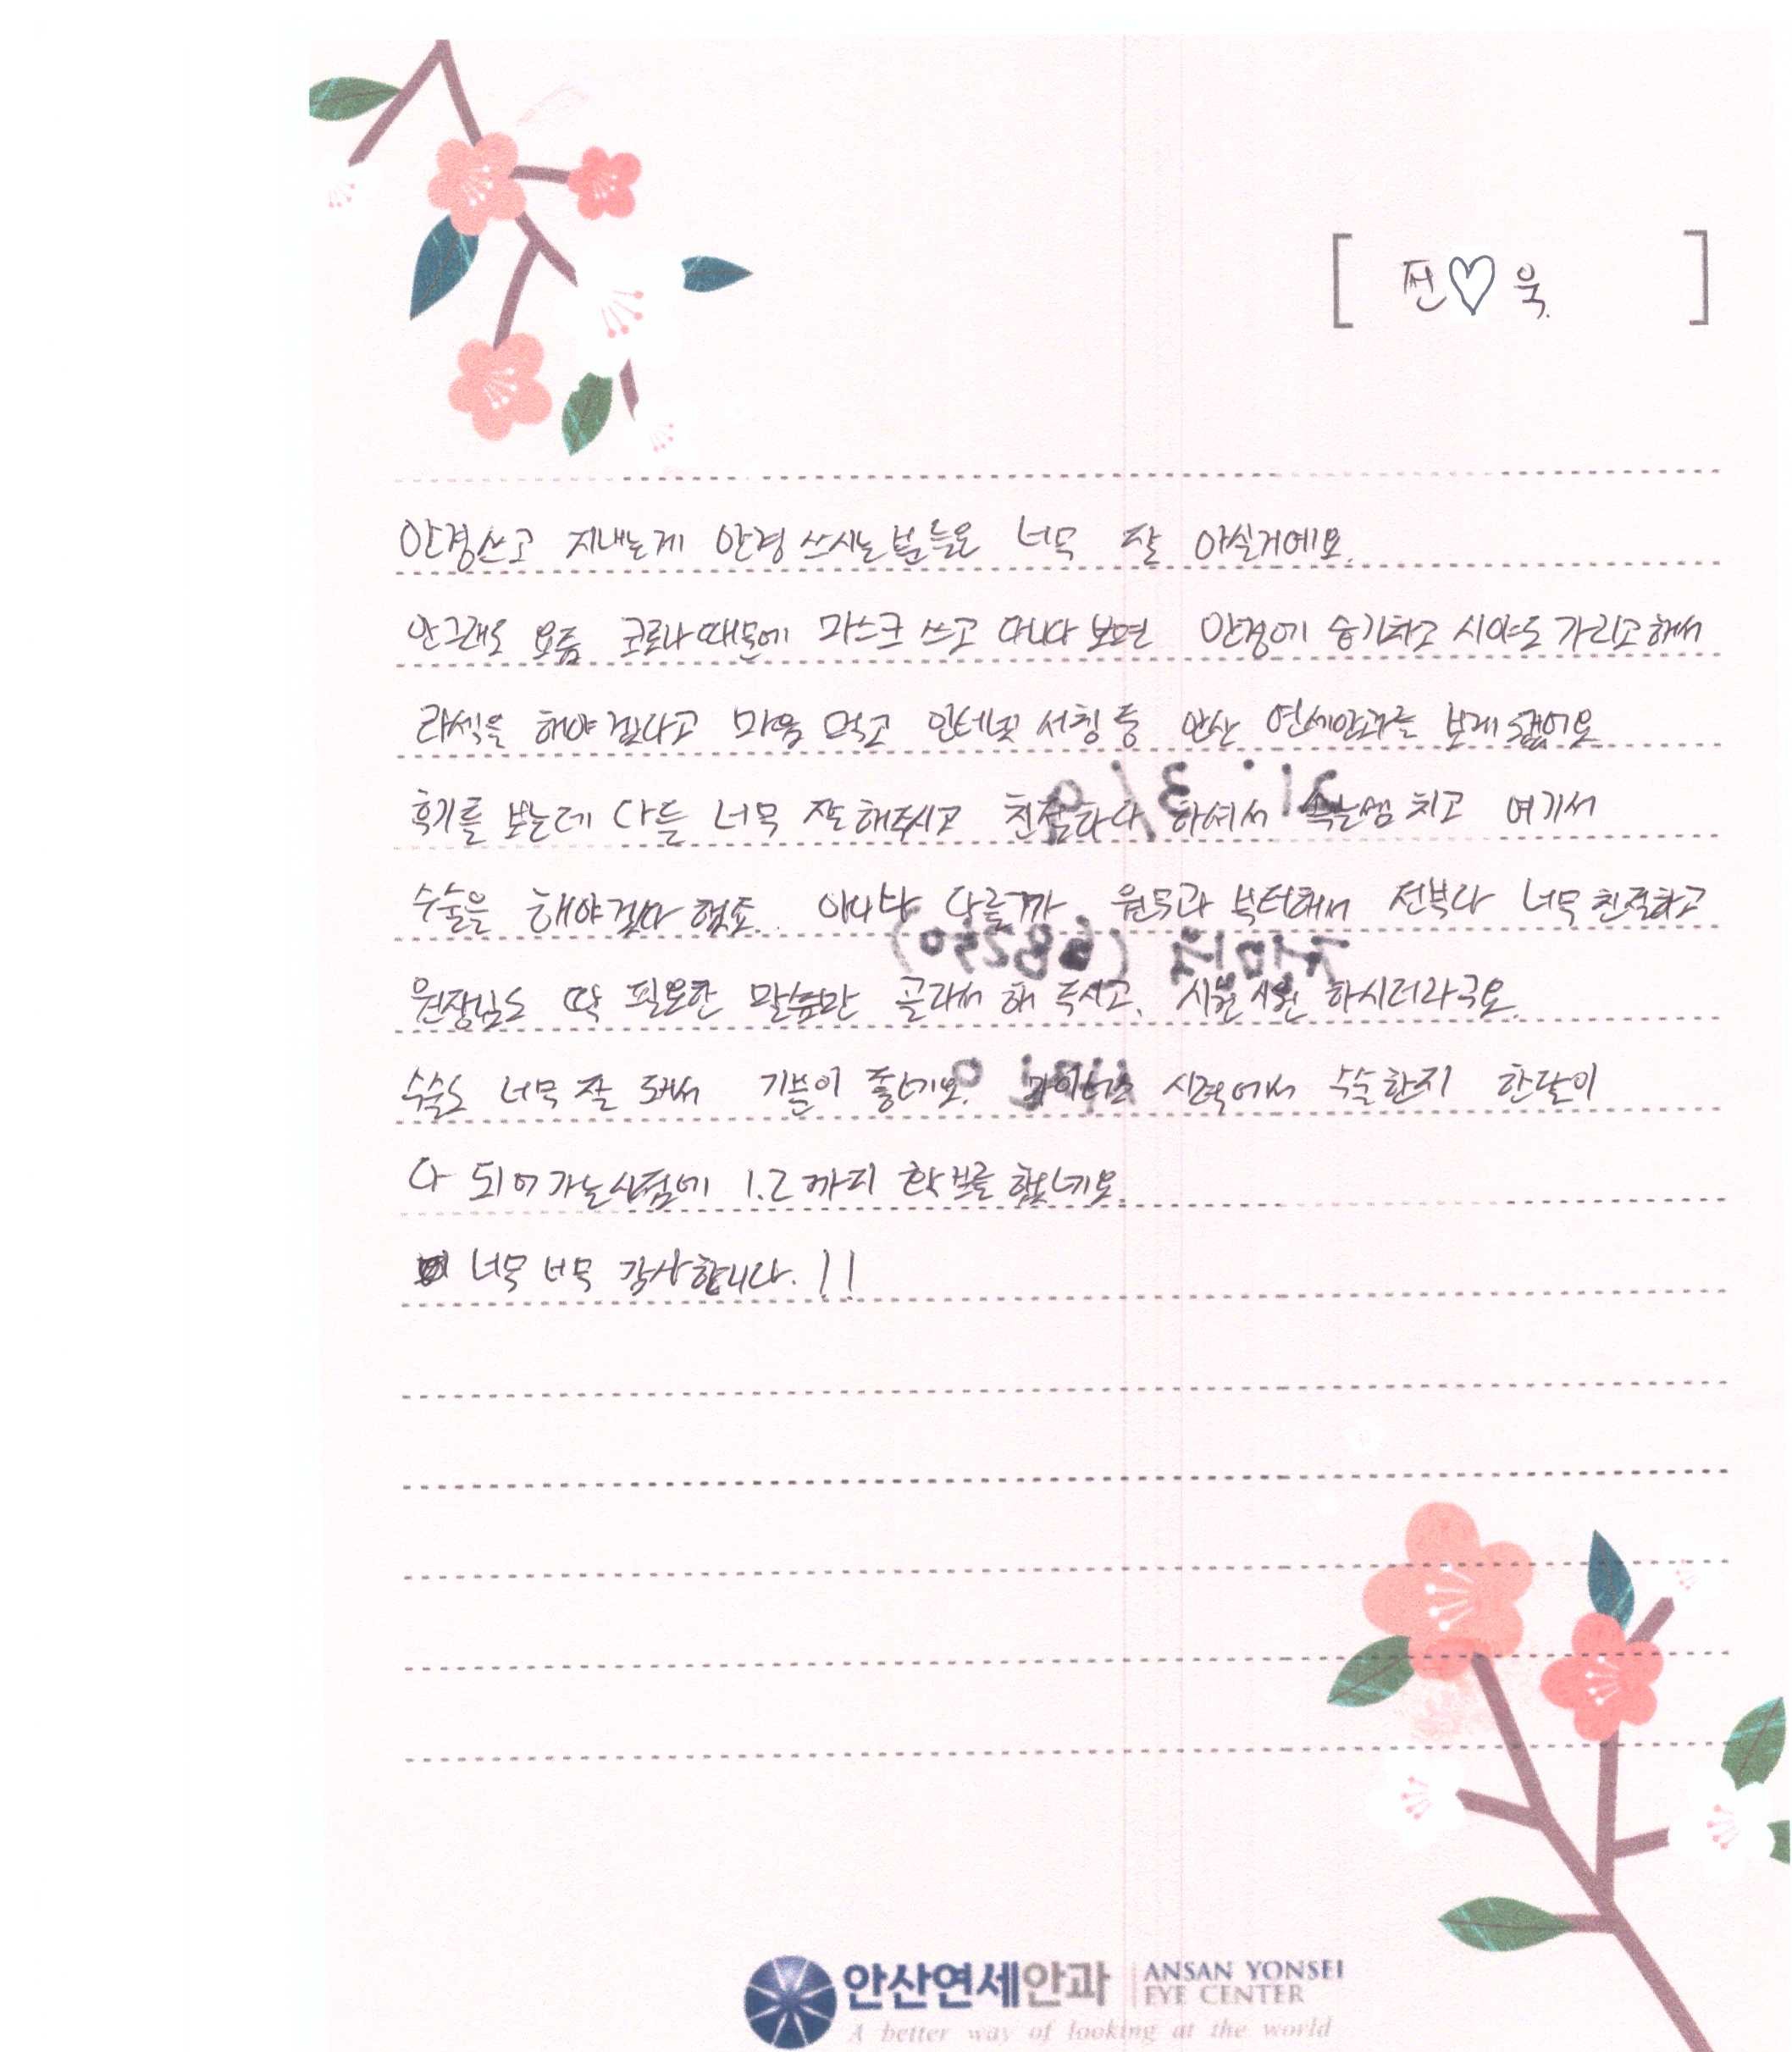 [ 전♡욱. ]
안경쓰고 지내는게 안경 쓰시는 분들은 너무 잘 아실거에요.
안그래도 요즘 코로나때문에 마스크 쓰고 다니다 보면 안경에 습기차고 시야도 가리고해서
라섹을 해야겠다고 마음 먹고 인터넷 서칭 중 안산 연세안과를 보게 됐어요
후기를 보는데 다들 너무 잘해주시고 친절하다 하셔서 속는셈 치고 여기서
수술을 해야겠다 했죠. 아니나 다를까, 원무과 부터해서 전부다 너무 친절하고
원장님도 딱 필요한 말씀만 골라서 해 주시고, 시원시원 하시더라구요.
수술도 너무 잘 돼서 기분이 좋네요. 마이너스 시력에서 수술한지 한달이
다 되어가는시점에 1.2까지 확보를 했네요.
너무 너무 감사합니다. !!
안산연세안과 ANSAN YONSEI
EYE CENTER
A better way of looking at the world